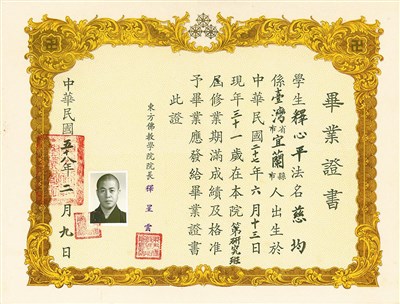 畢業證書
學生釋心平法名慈均
係臺灣省市宜蘭縣市人出生於
中華民國二十七年六月十三日
現年三十一歲在本院第研究班
屆修業期滿成績及格准
予畢業應發給畢業證書
此證
東方佛教學院院長 釋星雲
中華民國五十八年二月九日